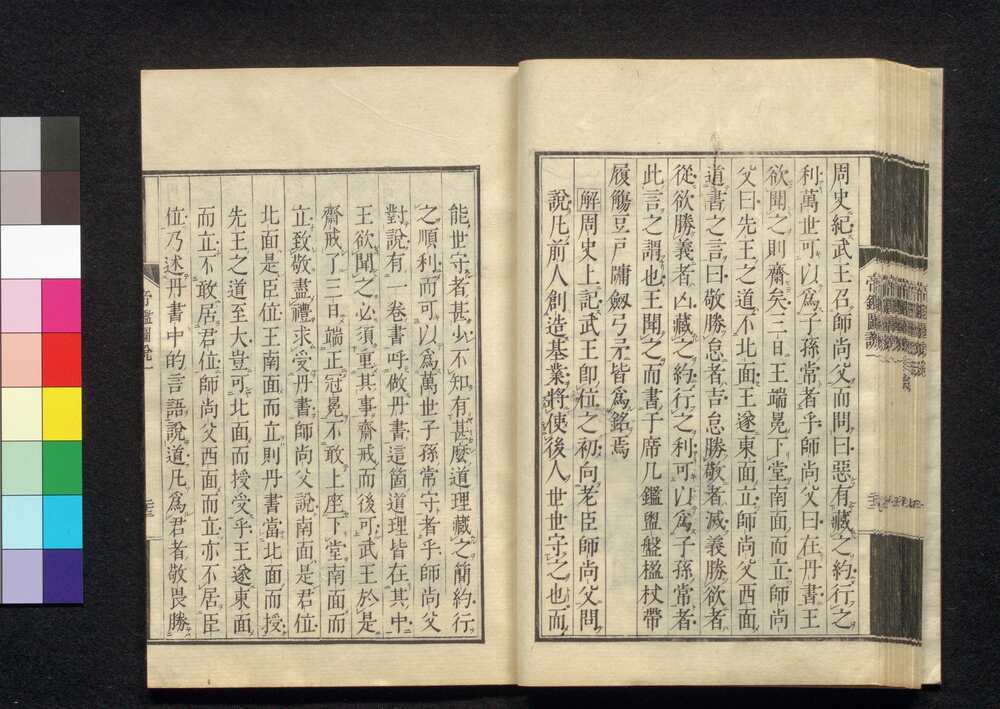 周史紀武王召師尚父而問曰惡有藏之約行之
利萬世可以爲子孫常者乎師尚父曰在丹書王
欲聞之則齋矣三日王端冕下堂南面而立師尚
父曰先王之道不北面王遂東面立師尚父西面
道書之言曰敬勝怠者吉怠勝敬者滅義勝欲者
從欲勝義者凶藏之約行之利可以爲子孫常者
此言之謂也王聞之而書于席几鑑盥盤楹杖帶
履觴豆戶牖劔弓矛皆爲銘焉
解周史上記武王即位之初向老臣師尚父問
說凡前人創造基業將使後人世世守之也而
能世守者甚少不知有甚麽道理藏之簡約行
之順利而可以爲萬世子孫常守者乎師尚父
對說有一卷書呼做丹書這箇道理皆在其中
王欲聞之必須重其事齋戒而後可武王於是
齋戒了三日端正冠冕不敢上座下堂南面而
立致敬盡禮求受丹書師尚父說南面是君位
北面是臣位王南面而立則丹書當北面而授
先王之道至大豈可北面而授受乎王遂東面
而立不敢居君位師尚父西面而立亦不居臣
位乃述丹書中的言語說道凡爲君者敬畏勝
帝鑑圖說一
帝鑑圖說一